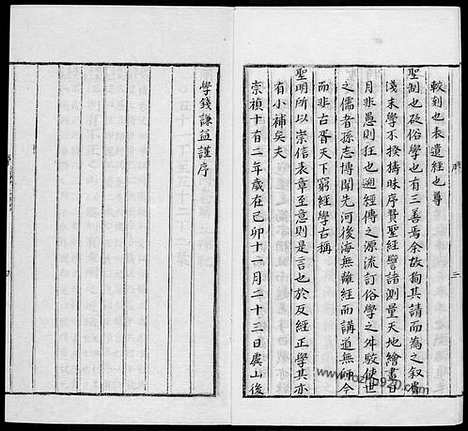 較刻也表遺經也尊
聖制也砭俗學也有三善焉余故狥其請而為之叙
淺末學不揆檮昧序贊聖經譬諸測量天地繪畫日
月非愚則狂也遡經傳之源流訂俗學之舛駮使世
之儒者孫志博聞先河後海無離經而講道無師今
而非古胥天下窮經學古稱
聖明所以崇信表章至意則是言也於反經正學其亦
有小補矣夫
崇禎十有二年歲在己卯十一月二十三日虞山後
學錢謙益謹序
二